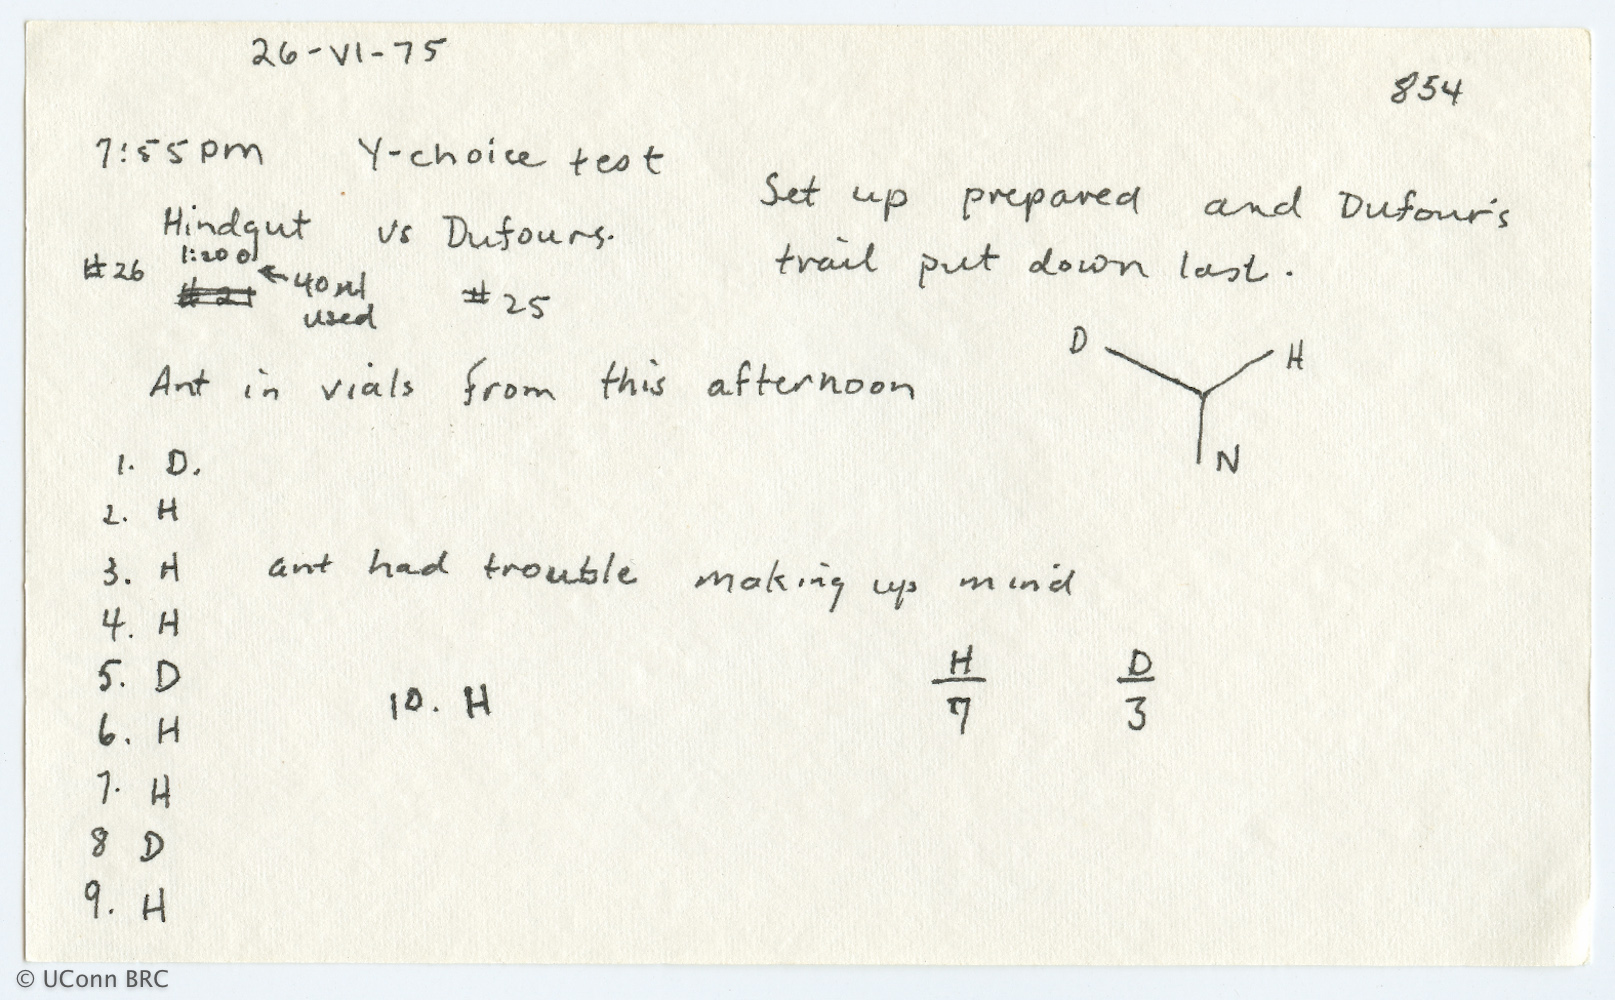 26-VI-75
854
7:55pm Y-choice test
Hindgut vs Dufours.
Set up prepared and Dufour's
trail put down last.
#26 1:200 ← 40 μl used #25
Ant in vials from this afternoon
D H
N
1. D.
2. H
3. H ant had trouble making up mind
4. H
5. D
6. H
7. H
8 D
9. H
10. H
H D
7 3
© UConn BRC